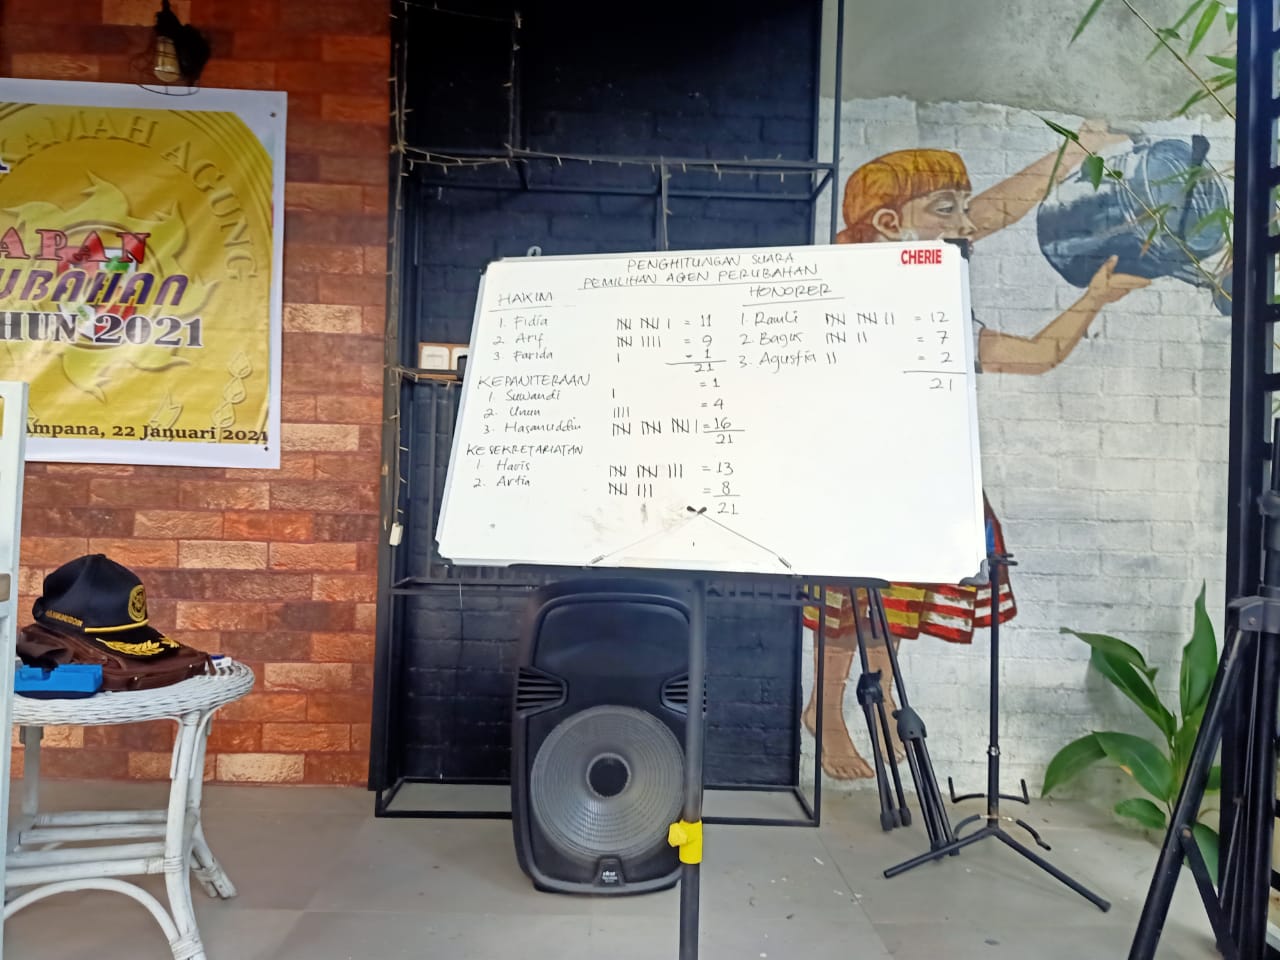 KAMAH AGUNG
APAN
UBAHAN
HUN 2021
Ampana, 22 Januari 2021
CHERIE
PENGHITUNGAN SUARA
PEMILIHAN AGEN PERUBAHAN
HAKIM
1. Fidia 𝍸 𝍸 I = 11
2. Arif 𝍸 IIII = 9
3. Farida I = 1
21
KEPANITERAAN
1. Suwandi I = 1
2. Unun IIII = 4
3. Hasanuddin 𝍸 𝍸 𝍸 I = 16
21
KESEKRETARIATAN
1. Haris 𝍸 𝍸 III = 13
2. Artia 𝍸 III = 8
21
HONORER
1. Ramli 𝍸 𝍸 II = 12
2. Bagus 𝍸 II = 7
3. Agustia II = 2
21